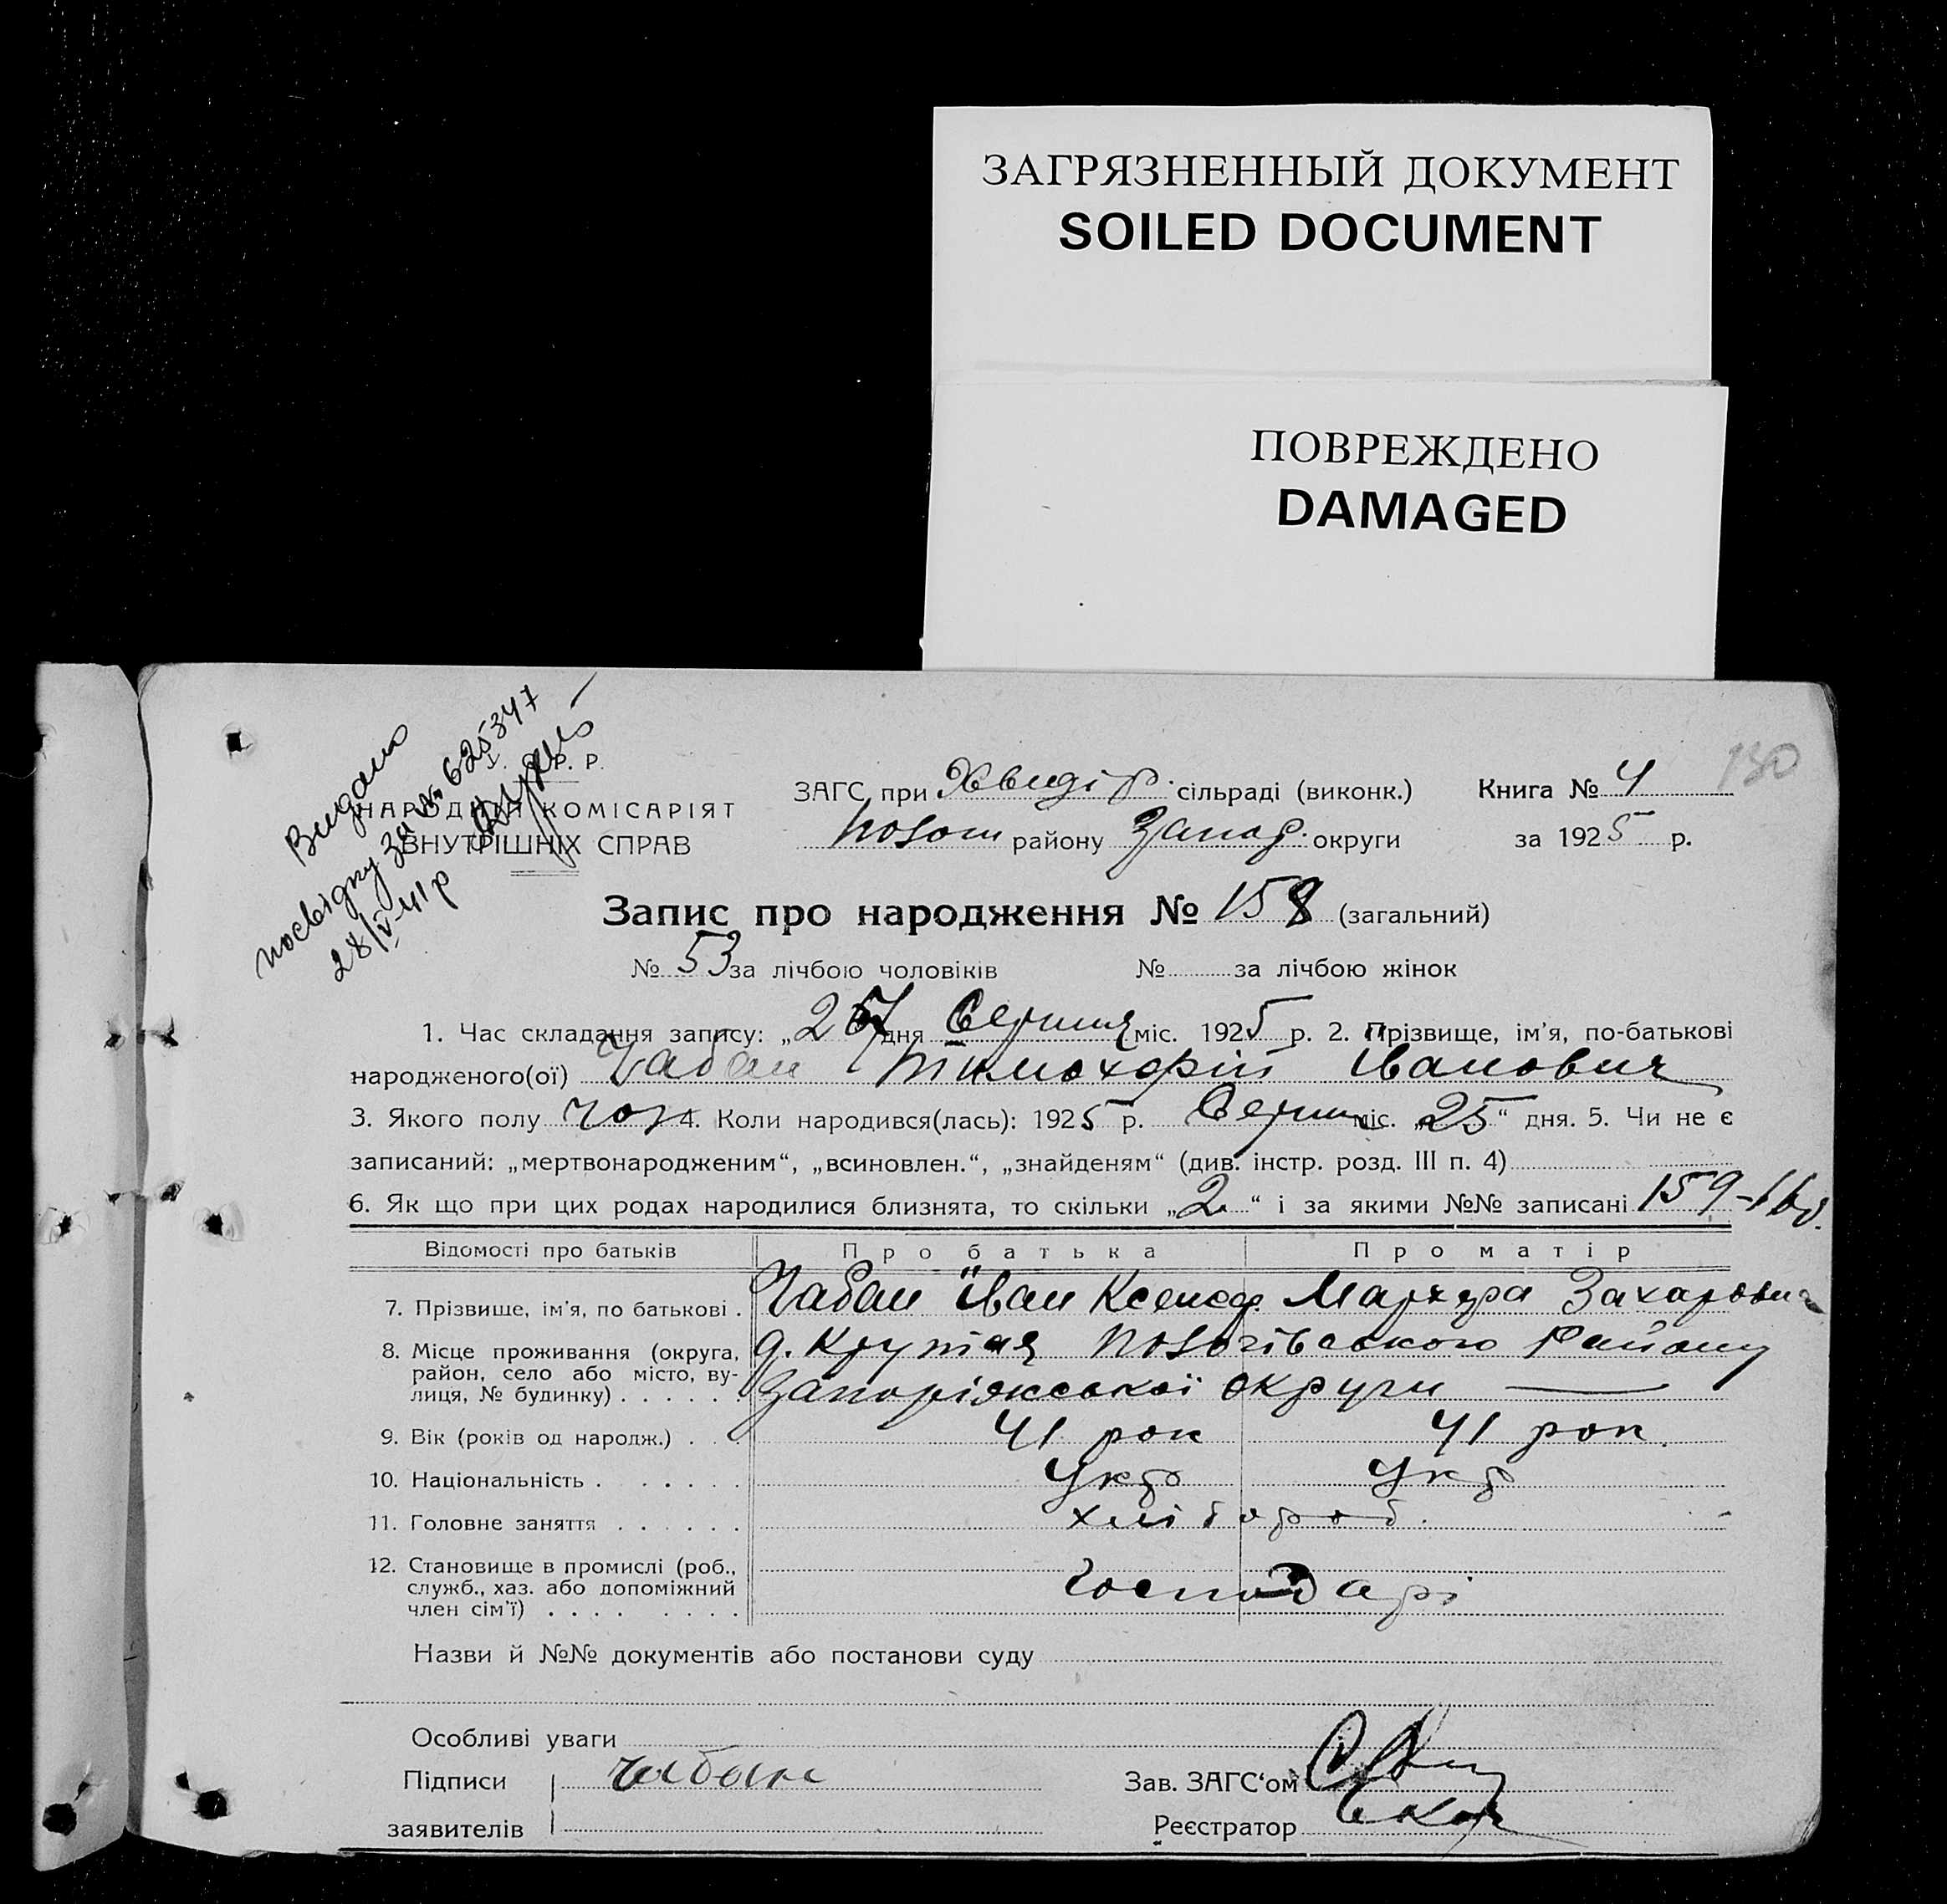 ЗАГРЯЗНЕННЫЙ ДОКУМЕНТ
SOILED DOCUMENT
ПОВРЕЖДЕНО
DAMAGED
130
Видано
посвідку за № 625347
28/V-41 р
У. С. Р. Р.
НАРОДНИЙ КОМІСАРІЯТ
ВНУТРІШНІХ СПРАВ
ЗАГС при сільраді (виконк.) Книга № 4
району округи за 1925 р.
Запис про народження № 158 (загальний)
№ 53 за лічбою чоловіків № за лічбою жінок
1. Час складання запису: „ дня Серпня міс. 1925 р. 2. Прізвище, ім'я, по-батькові
народженого(ої) Чабан Тимохфій Іванович
3. Якого полу чол 4. Коли народився(лась): 1925 р. Серпня міс. „25“ дня. 5. Чи не є
записаний: „мертвонародженим“, „всиновлен.“, „знайденям“ (див. інстр. розд. III п. 4)
6. Як що при цих родах народилися близнята, то скільки „2“ і за якими №№ записані 159-160.
Відомості про батьків Про батька Про матір
7. Прізвище, ім'я, по батькові . Чабан Іван Ксеноф Захаровна
8. Місце проживання (округа, район, село або місто, вулиця, № будинку) . . . . . . району
Запоріжської округи
9. Вік (років од народж.) . . . 41 рок 41 рок.
10. Національність . . . . . . Укр Укр
11. Головне заняття . . . . . . хлібороб.
12. Становище в промислі (роб., служб., хаз. або допоміжний член сім'ї) . . . . . . . . Господарі
Назви й №№ документів або постанови суду
Особливі уваги
Підписи Чабан Зав. ЗАГС'ом
заявителів Реєстратор